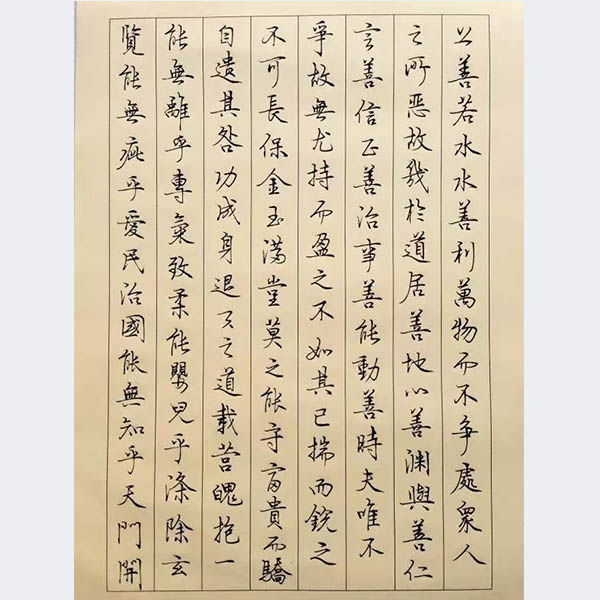 上善若水水善利萬物而不争處衆人
之所惡故幾於道居善地心善淵與善仁
言善信正善治事善能動善時夫唯不
爭故無尤持而盈之不如其已揣而銳之
不可長保金玉滿堂莫之能守富貴而驕
自遺其咎功成身退天之道載營魄抱一
能無離乎專氣致柔能嬰兒乎滌除玄
覽能無疵乎愛民治國能無知乎天門開